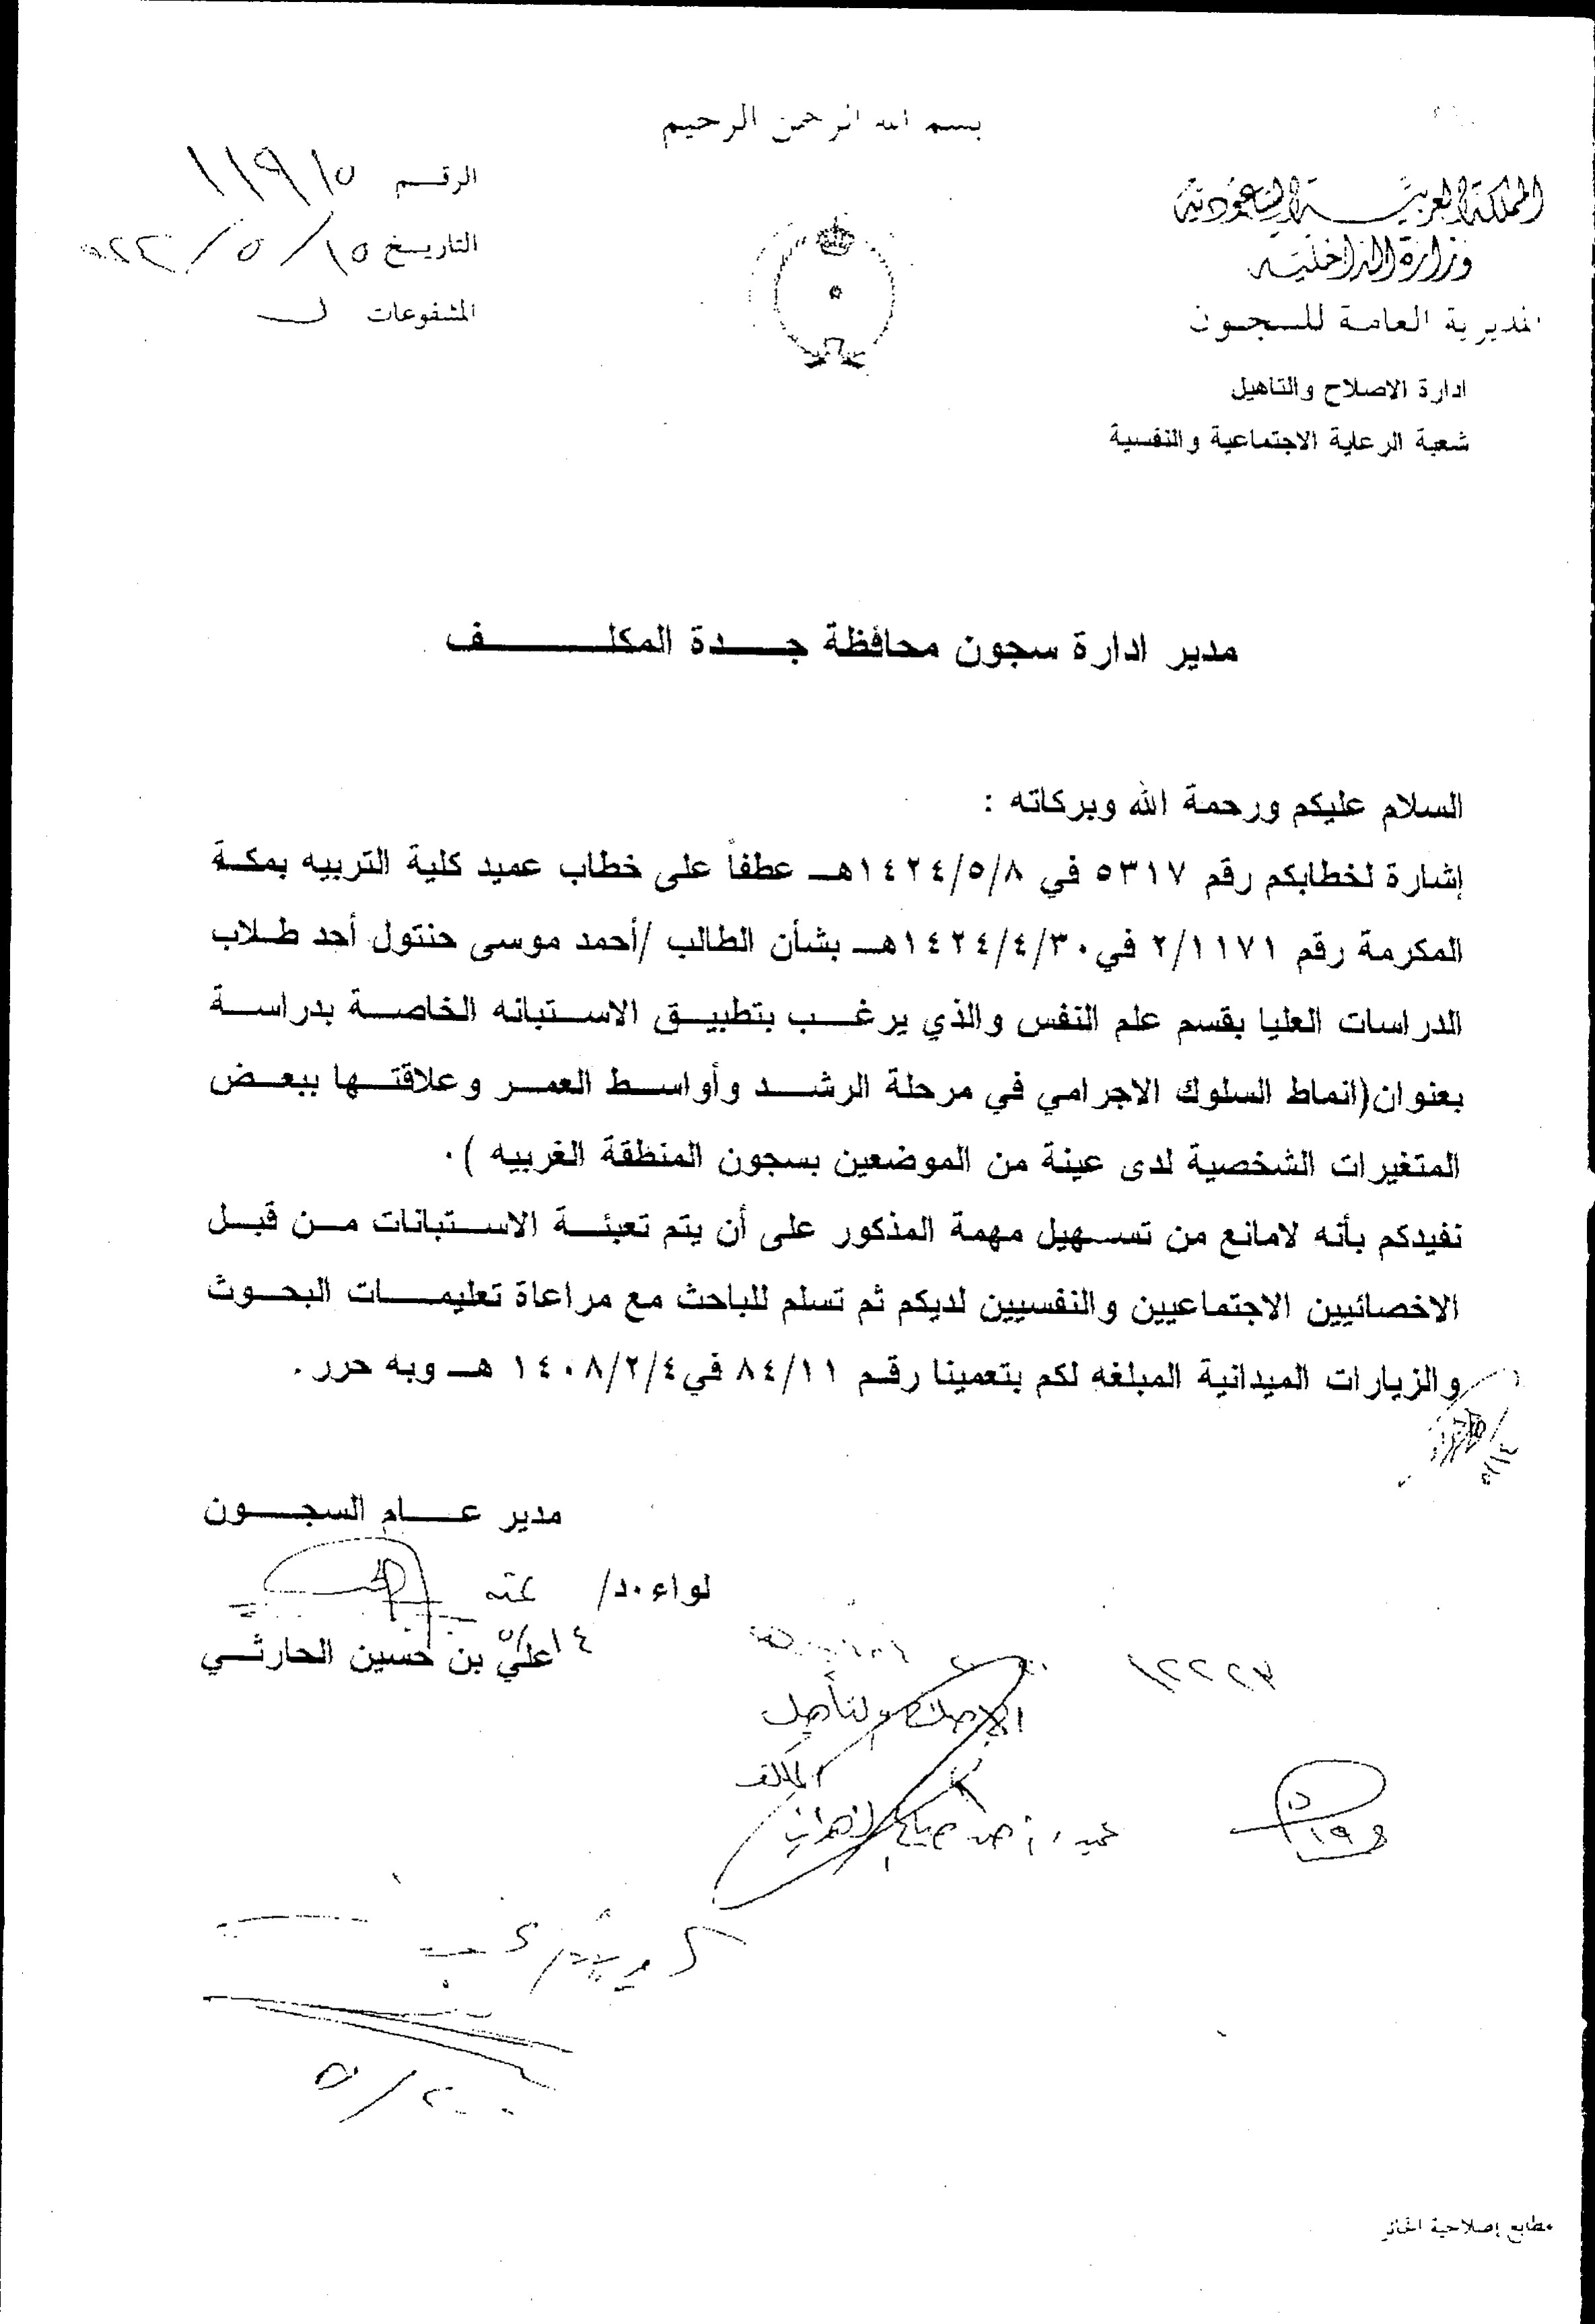 بسم الله الرحمن الرحيم
المملكة العربية السعودية
وزارة الداخلية
المديرية العامة للسجون
ادارة الاصلاح والتاهيل
شعبة الرعاية الاجتماعية والنفسية
الرقم ١١٩١٥
التاريخ ١٥/٥/
المشفوعات
مدير ادارة سجون محافظة جدة المكلف
السلام عليكم ورحمة الله وبركاته :
إشارة لخطابكم رقم ٥٣١٧ في ١٤٢٤/٥/٨هـ عطفاً على خطاب عميد كلية التربيه بمكة
المكرمة رقم ٢/١١٧١ في ١٤٢٤/٤/٣٠هـ بشأن الطالب /أحمد موسى حنتول أحد طلاب
الدراسات العليا بقسم علم النفس والذي يرغب بتطبيق الاستبانه الخاصة بدراسة
بعنوان(انماط السلوك الاجرامي في مرحلة الرشد وأواسط العمر وعلاقتها ببعض
المتغيرات الشخصية لدى عينة من الموضعين بسجون المنطقة الغربيه ).
نفيدكم بأنه لامانع من تسهيل مهمة المذكور على أن يتم تعبئة الاستبانات من قبل
الاخصائيين الاجتماعيين والنفسيين لديكم ثم تسلم للباحث مع مراعاة تعليمات البحوث
والزيارات الميدانية المبلغه لكم بتعمينا رقم ٨٤/١١ في ١٤٠٨/٢/٤ هـ وبه حرر.
مدير عام السجون
لواء.د/
علي بن حسين الحارثي
١٢٢٢٣
المكلف
٥/٢٠
مطابع إصلاحية الحائر